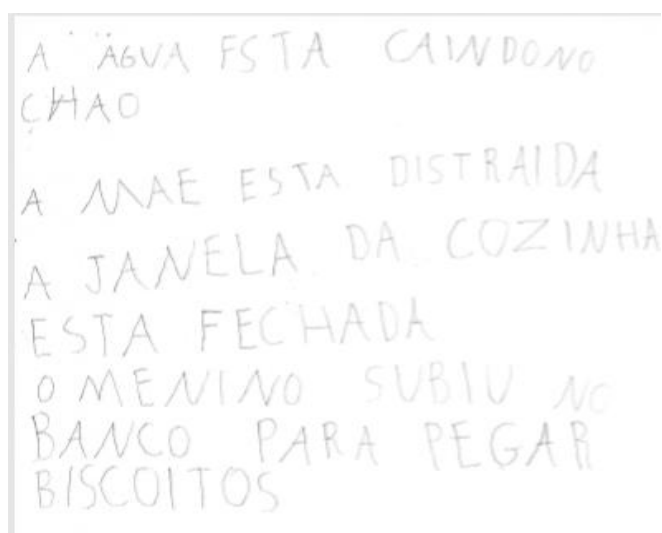 A ÁGUA ESTA CAINDONO
CHAO
A MAE ESTA DISTRAIDA
A JANELA DA COZINHA
ESTA FECHADA
O MENINO SUBIU NO
BANCO PARA PEGAR
BISCOITOS